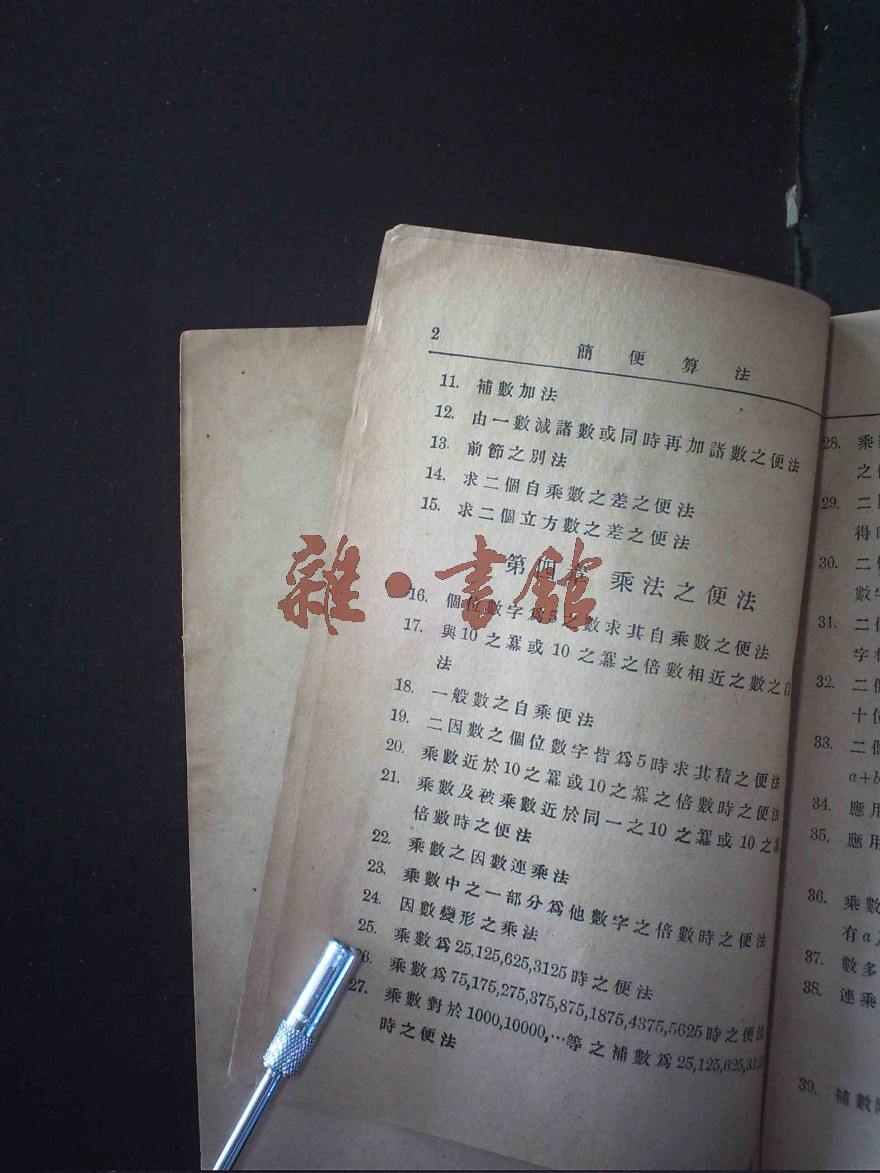 2
簡便算法
11. 補數加法
12. 由一數減諸數或同時再加諸數之便法
13. 前節之別法
14. 求二個自乘數之差之便法
15. 求二個立方數之差之便法
第四章 乘法之便法
16. 個位數字爲5之數求其自乘數之便法
17. 與10之冪或10之冪之倍數相近之數之自
法
18. 一般數之自乘便法
19. 二因數之個位數字皆爲5時求其積之便法
20. 乘數近於10之冪或10之冪之倍數時之便法
21. 乘數及被乘數近於同一之10之冪或10之冪
倍數時之便法
22. 乘數之因數連乘法
23. 乘數中之一部分爲他數字之倍數時之便法
24. 因數變形之乘法
25. 乘數爲25,125,625,3125時之便法
26. 乘數爲75,175,275,375,875,1875,4375,5625時之便法
27. 乘數對於1000,10000,…等之補數爲25,125,625,312
時之便法
雜·書館
28. 乘
之
29. 二
得
30. 二
數
31. 二
字
32. 二個
十位
33. 二個
a+b
34. 應用
35. 應用
36. 乘數
有a
37. 數多
38. 連乘
39. 補數